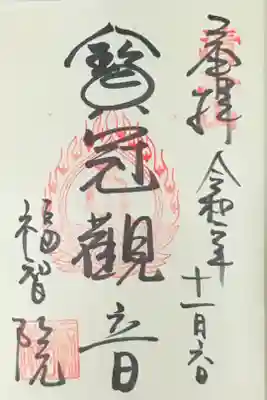 奉拝
令和元年
十一月六日
寶冠觀音
福智院